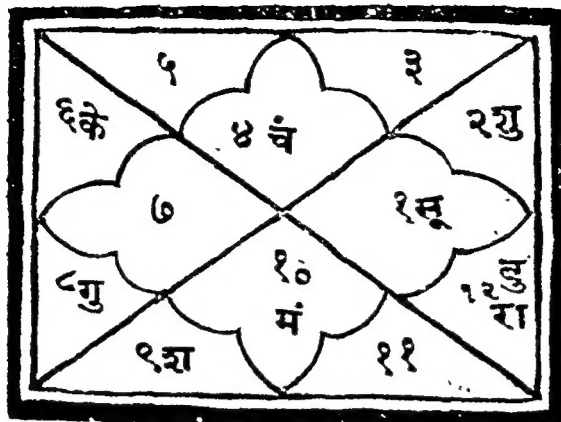 ५ ३
६के ४ चं २शु
७ १सू
८गु १० १२बु
मं रा
९श ११